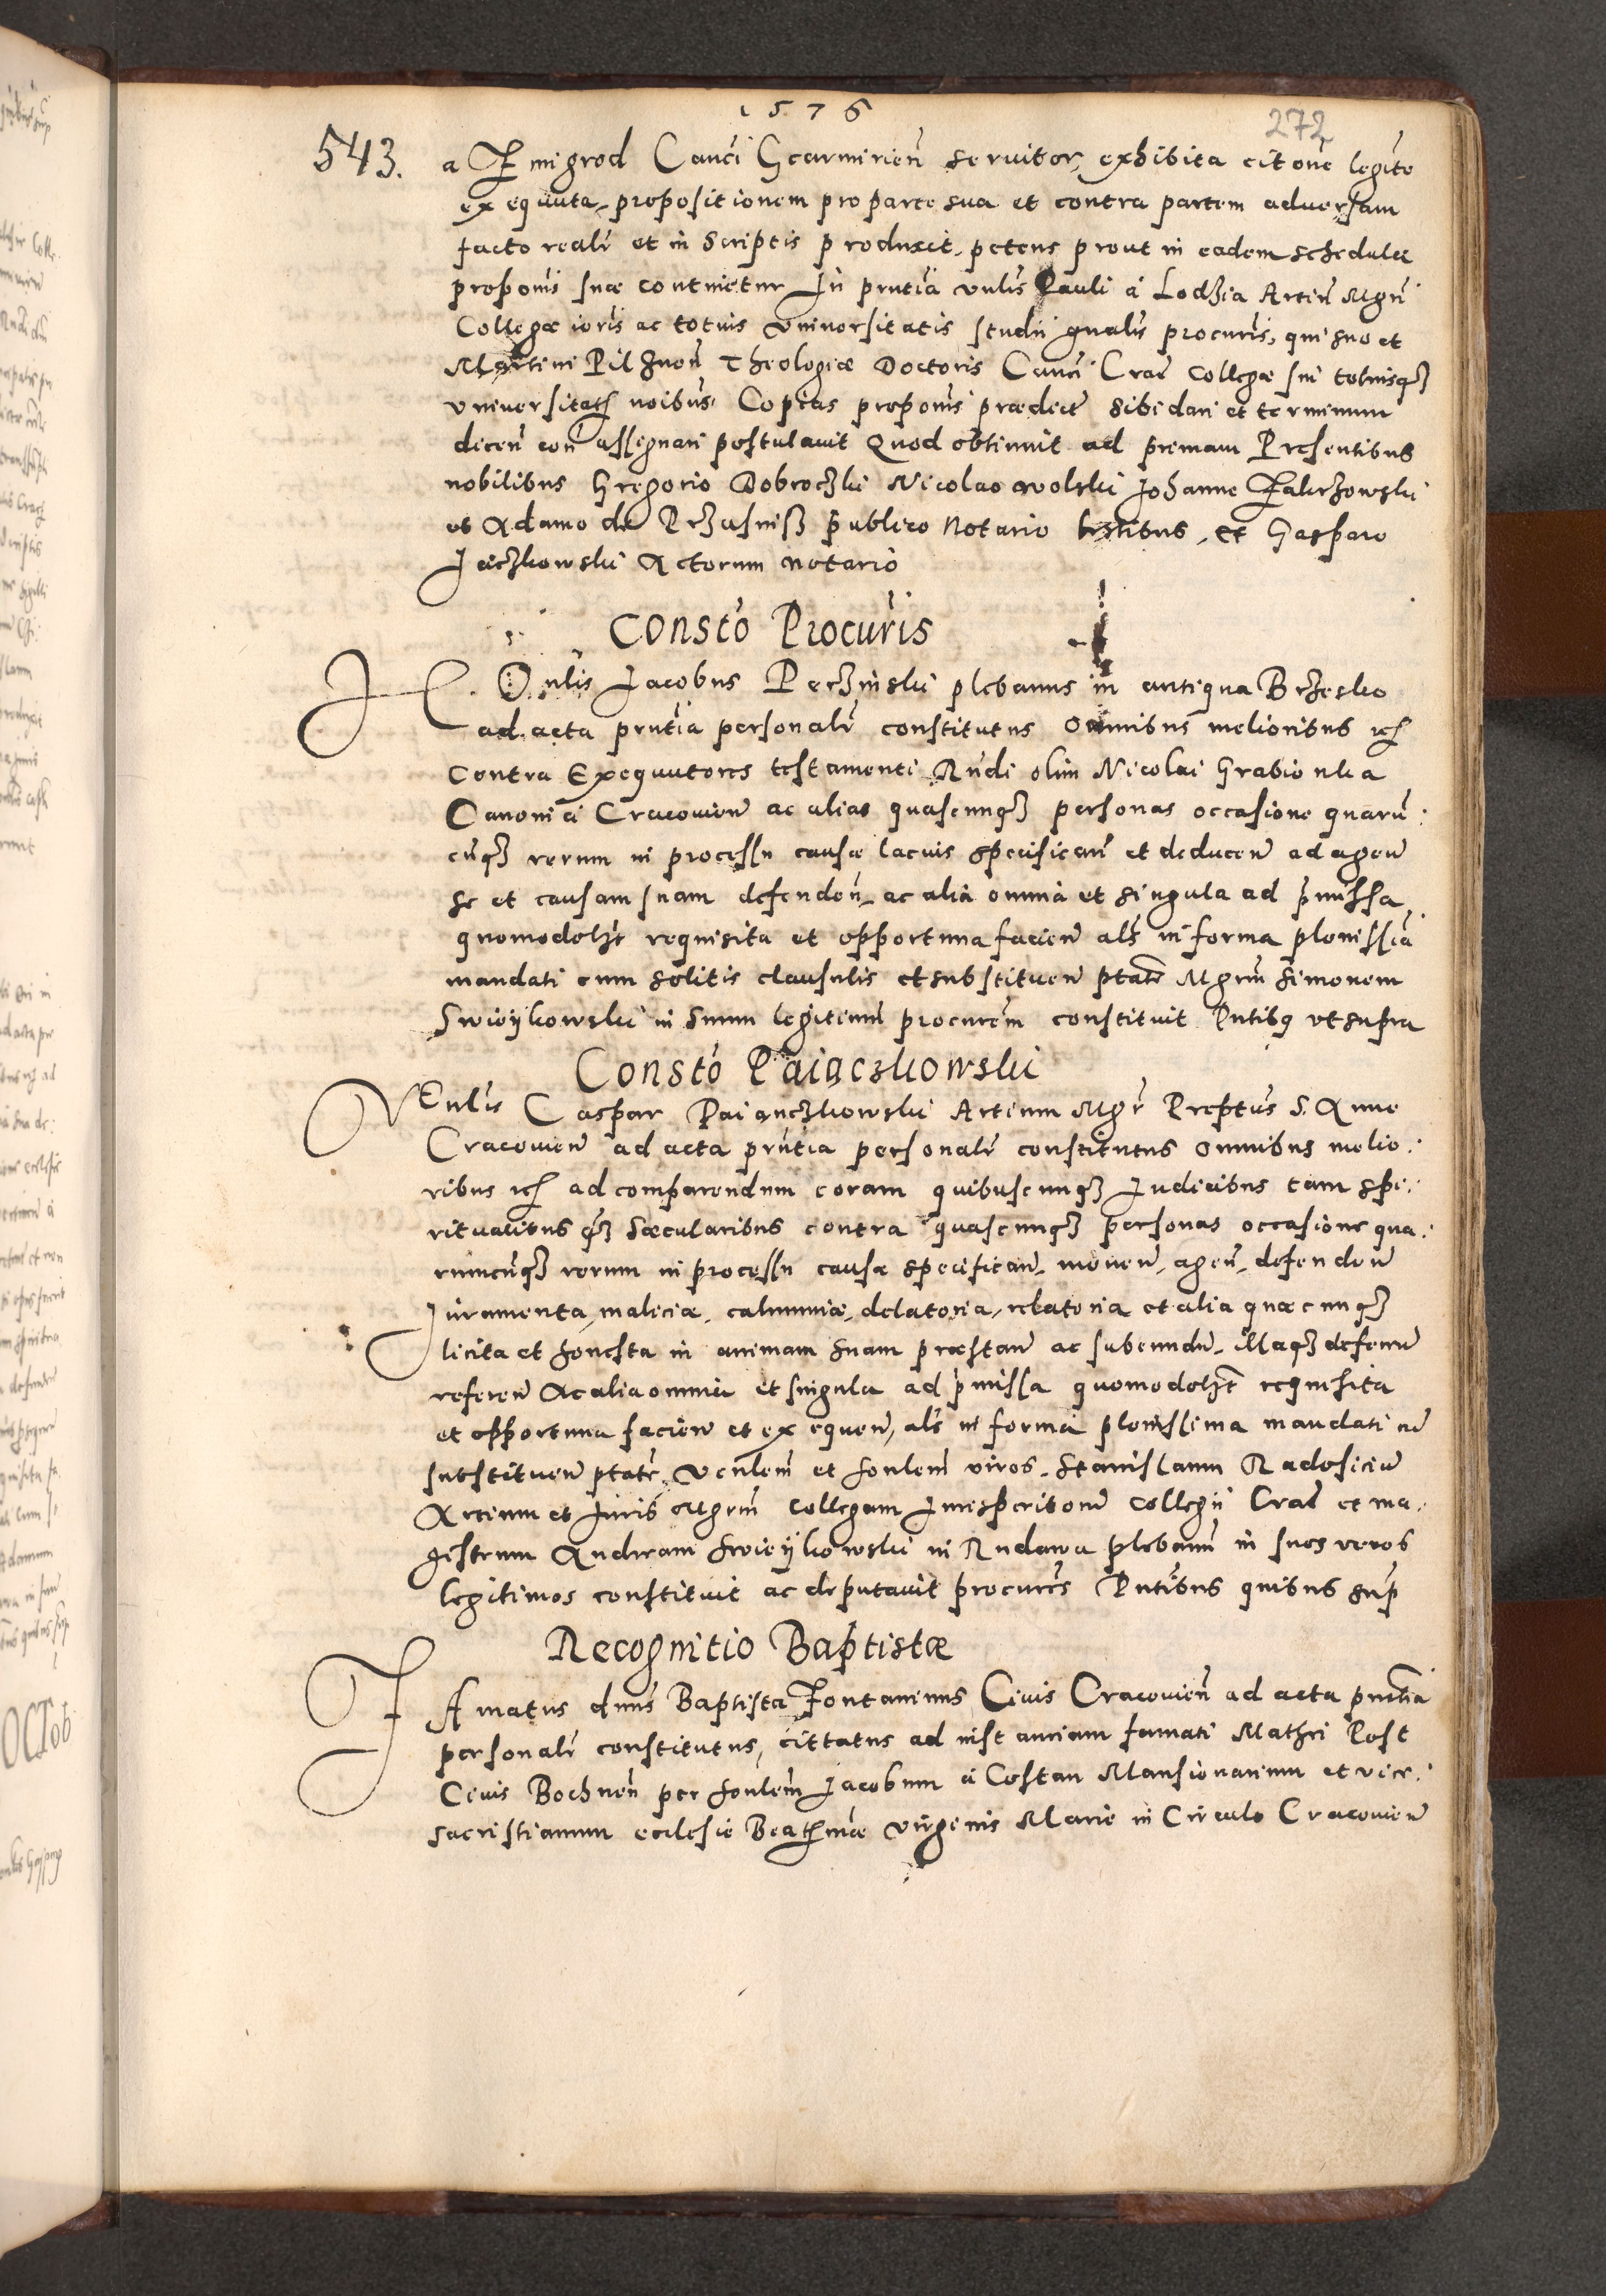 1576
272
543.
a Zmigrod Canci Scarmirien̄ servitor, exhibita citōne legitē
exequuta, propositionem pro parte sua et contra partem adversam
facto realr̄ et in scriptis produxit, petens prout in eadem schedula
propōnis suæ continetur In pn̄tia vn̄lis Pauli a Lodzia Artiū Mgrī
Collegæ ioris ac totius Universitatis studii gn̄alis procurīs, qui suo et
Martini Pilznen̄ Theologiæ Doctoris Canci Crac̄ Collegæ sui totiusqȝ
Universitatis noibus Copias propōnis prædictē sibi dari et terminum
dicen̄ con̄ assignari postulavit Quod obtinuit ad primam Presentibus
nobilibus Gregorio Dobroczki Nicolao Wolski Johanne Zakrzowski
et Adamo de Przasnisz publico Notario testibus, et Gasparo
Jaczkowski Actorum notario
Constō Procurīs
V̄nlis Jacobus Peczinski plebanus in antiqua Brzesko
ad acta pn̄tia personalr̄ constitutus omnibus melioribus etc
contra Exequutores testamenti Rn̄di olim Nicolai Grabionka
Canonici Cracovien̄ ac alias quascunqȝ personas occasione quarū
cūqȝ rerum in processu causæ lacius specifican̄ et deducen̄ ad agen̄
se et causam suam defenden̄ ac alia omnia et singula ad p̄missa
quomodolȝt requisita et opportuna facien̄ als̄ in forma plenissīa
mandati cum solitis clausulis et substituen̄ ptatē Mgrm̄ Simonem
Swieykowski in suum legitimū procurēm constituit Pn̄tibȝ ut supra
Constō Paiaczkowski
VEn̄lis Caspar Paianczkowski Artium Mgr̄ Præptus S. Anne
Cracovien̄ ad acta pn̄tia personalr̄ constitutus omnibus melio
ribus etc ad comparendum coram quibuscunqȝ Iudicibus tam spi
ritualibus qȝ sæcularibus contra quascunqȝ personas occasione qua
rumcūqȝ rerum in processu causæ specifican̄, moven̄, agen̄, defenden̄
Iuramenta, maliciæ, calumniæ, delatoria, relatoria et alia quæcunqȝ
licita et honesta in animam suam præstan̄ ac subeundū, illaqȝ deferen̄
referen̄ Ac alia omnia et singula ad p̄missa quomodolȝt requisita
et opportuna facien̄ et exequen̄, als̄ in forma plenissima mandati cū
substituen̄ ptatē, ven̄lem et hon̄lem viros, Stanislaum Radosicium
Artium et Iuris Mgrm̄ Collegam Iurisperitorū Collegii Crac̄ et ma
gistrum Andream Swieykowski in Rudawa plebanū in suos veros
legitimos constituit ac deputavit procurēs Pn̄tibus quibus sup̄
Recognitio Baptistæ
FAmatus dnūs Baptista Fontaninus Civis Cracovien̄ ad acta pn̄tia
personalr̄ constitutus, cittatus ad instanciam famati Mathei Post
Civis Bochnen̄ per hon̄lem Jacobum a Costan Mansionarium et vice
sacristianum ecclesie Beatissimæ Virginis Marie in Circulo Cracovien̄